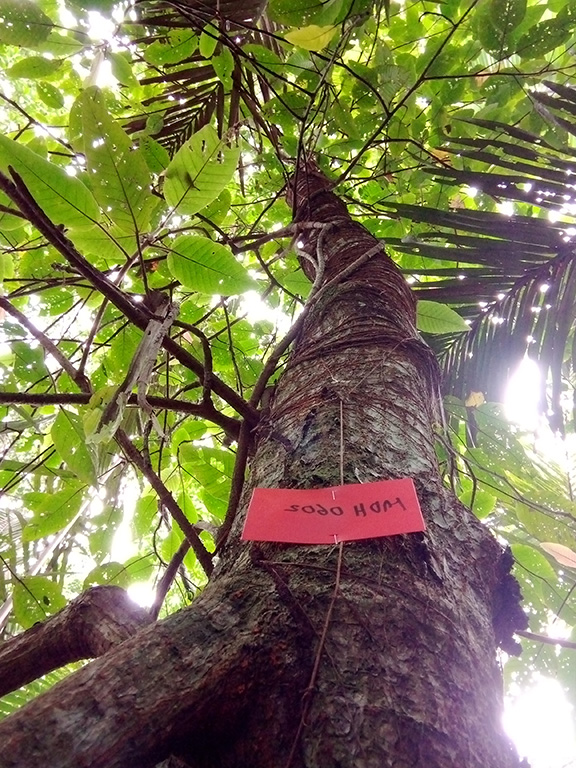 MDH 0602